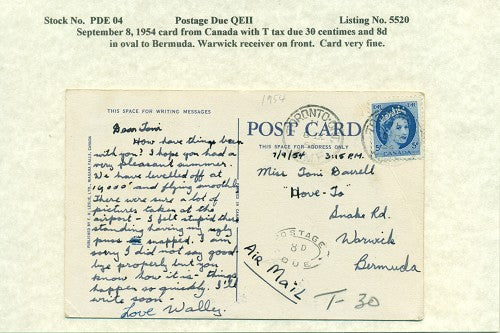 Stock No. PDE 04 Postage Due QEII Listing No. 5520
September 8, 1954 card from Canada with T tax due 30 centimes and 8d
in oval to Bermuda. Warwick receiver on front. Card very fine.
1954
THIS SPACE FOR WRITING MESSAGES
Dear Toni
How have things been
with you? I hope you had a
very pleasant summer.
We have levelled off at
19,000' and flying smoothly
There were sure a lot of
pictures taken at the
airport - I felt stupid there
standing having my ugly
puss snapped. I am
sorry I did not say good
bye properly but you
know how it is - things
happen so quickly. I'll
write soon -
Love Wally.
POST CARD
THIS SPACE FOR ADDRESS ONLY
7/9/54 3:15 P.M.
Miss Toni Darrell
"Hove-To"
Snake Rd.
Warwick
Bermuda
AIR MAIL
T-30
TORONTO
POSTAGE
8D
DUE
CANADA
5